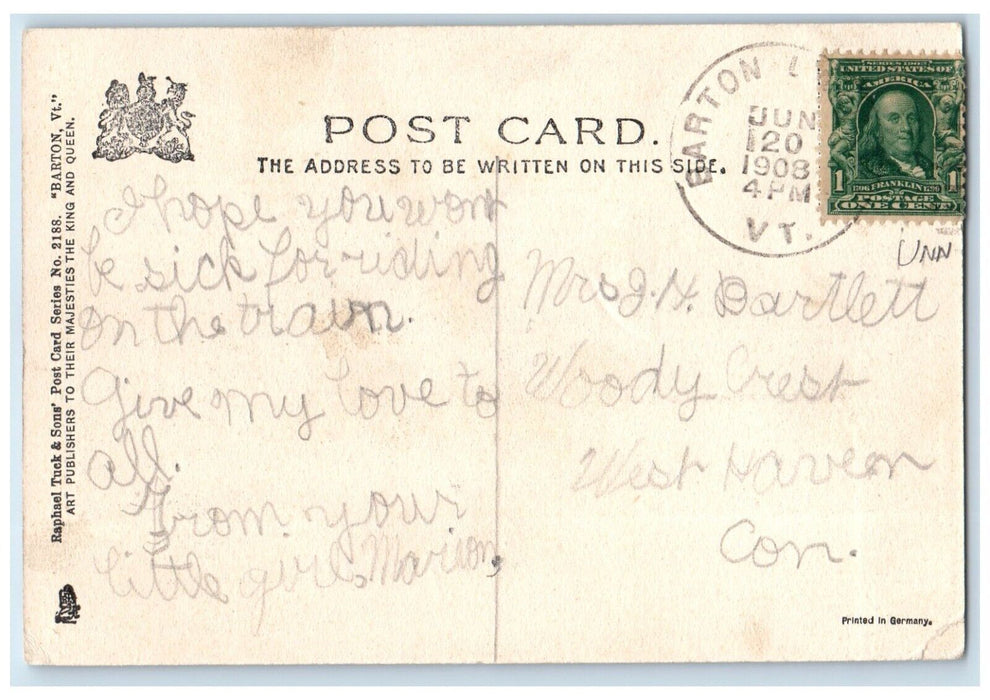 POST CARD.
THE ADDRESS TO BE WRITTEN ON THIS SIDE.
Raphael Tuck & Sons' Post Card Series No. 2188. "BARTON, Vt."
ART PUBLISHERS TO THEIR MAJESTIES THE KING AND QUEEN.
BARTON L
JUN
20
1908
4 PM
VT.
SERIES 1902
UNITED STATES OF
AMERICA
1 FRANKLIN 1
POSTAGE
ONE CENT
UNN
I hope you wont
be sick for riding
on the train.
Give my love to
all.
From your
little girl, Marion,
Mrs J. H. Bartlett
Woody Crest
West Haven
Con.
Printed in Germany.